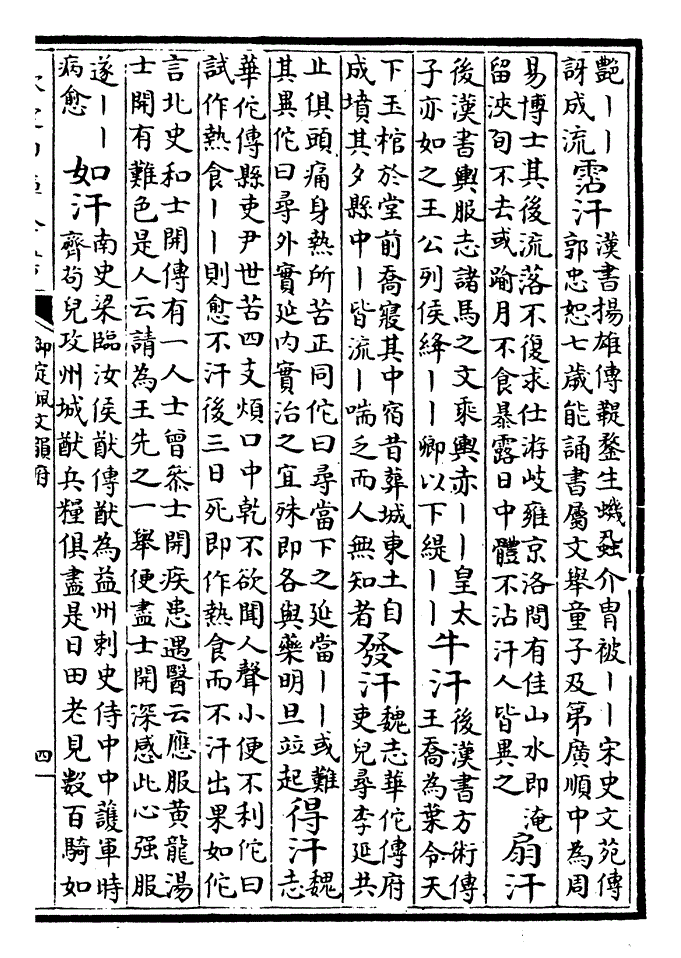 艷丨丨
訝成流
霑汗
漢書揚雄傳鞮鍪生蟣蝨介胄被丨丨宋史文苑傳
郭忠恕七歲能誦書屬文舉童子及第廣順中為周
易博士其後流落不復求仕游岐雍京洛間有佳山水即淹
留浹旬不去或踰月不食暴露日中體不沾汗人皆異之
扇汗
後漢書輿服志諸馬之文乘輿赤丨丨皇太
子亦如之王公列侯絳丨丨卿以下緹丨丨
牛汗
後漢書方術傳
王喬為葉令天
下玉棺於堂前喬寢其中宿昔葬城東土自
成墳其夕縣中丨皆流丨喘乏而人無知者
發汗
魏志華佗傳府
吏兒尋李延共
止俱頭痛身熱所苦正同佗曰尋當下之延當丨丨或難
其異佗曰尋外實延内實治之宜殊即各與藥明旦竝起
得汗
魏
志
華佗傳縣吏尹世苦四支煩口中乾不欲聞人聲小便不利佗曰
試作熱食丨丨則愈不汗後三日死即作熱食而不汗出果如佗
言北史和士開傳有一人士曾叅士開疾患遇醫云應服黄龍湯
士開有難色是人云請為王先之一舉便盡士開深感此心强服
遂丨丨
病愈
如汗
南史梁臨汝侯猷傳猷為益州刺史侍中中護軍時
齊苟兒攻州城猷兵糧俱盡是日田老見數百騎如
御定佩文韻府
四